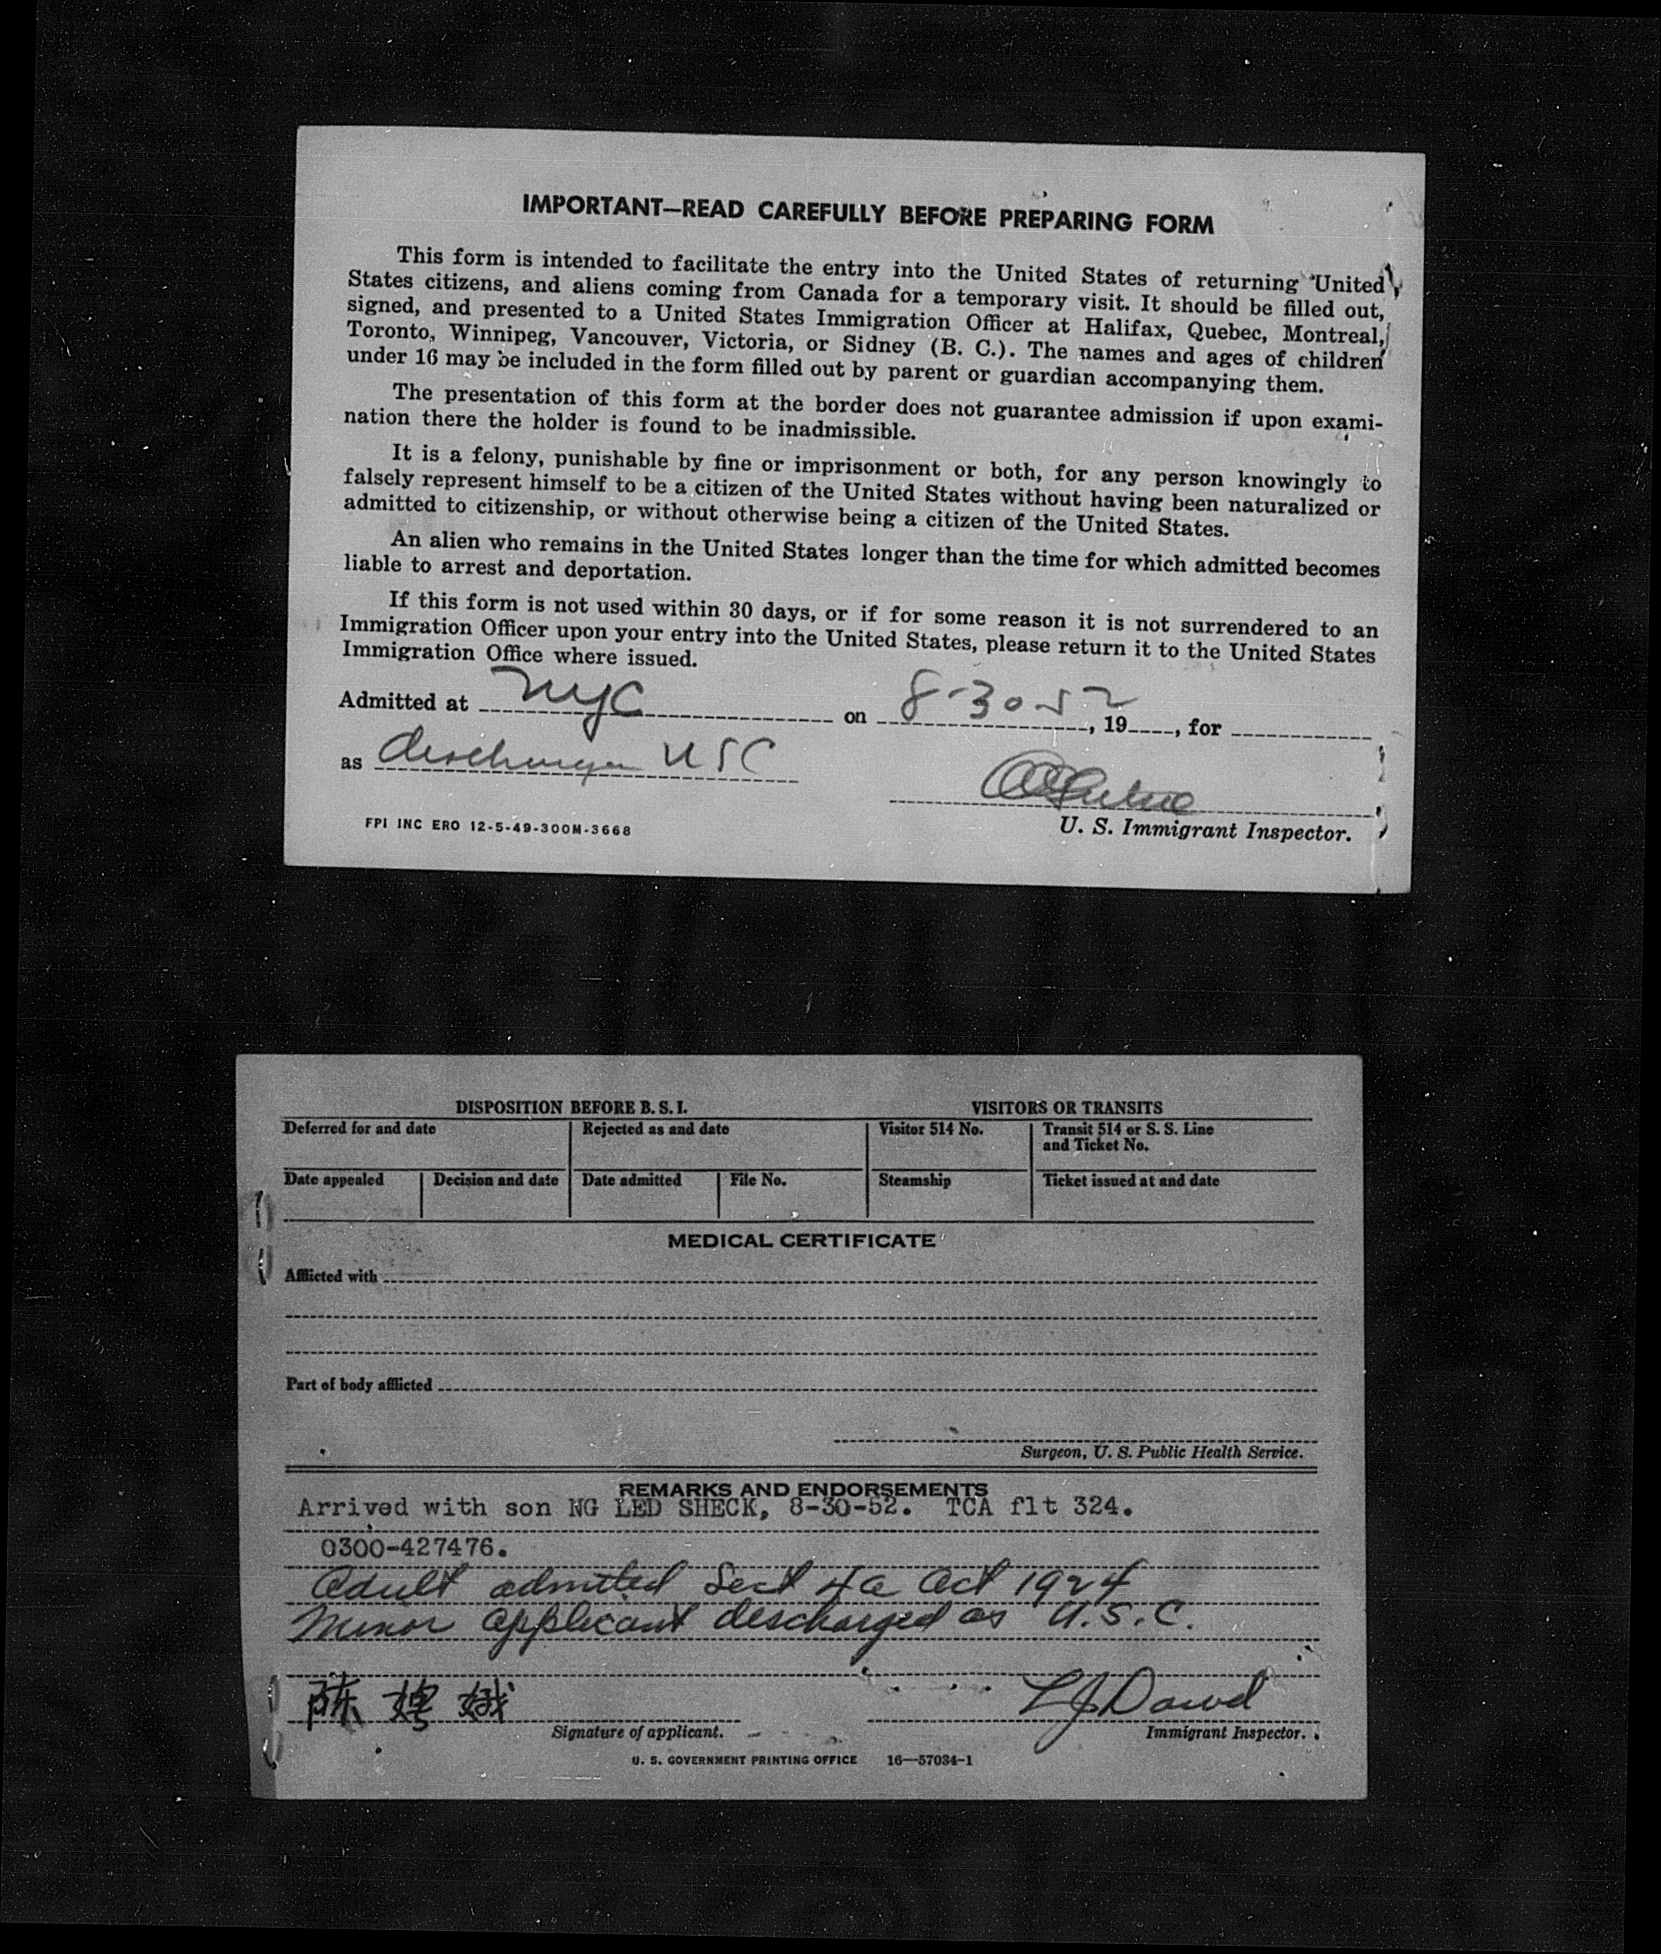 IMPORTANT—READ CAREFULLY BEFORE PREPARING FORM
This form is intended to facilitate the entry into the United States of returning United
States citizens, and aliens coming from Canada for a temporary visit. It should be filled out,
signed, and presented to a United States Immigration Officer at Halifax, Quebec, Montreal,
Toronto, Winnipeg, Vancouver, Victoria, or Sidney (B. C.). The names and ages of children
under 16 may be included in the form filled out by parent or guardian accompanying them.
The presentation of this form at the border does not guarantee admission if upon exami-
nation there the holder is found to be inadmissible.
It is a felony, punishable by fine or imprisonment or both, for any person knowingly to
falsely represent himself to be a citizen of the United States without having been naturalized or
admitted to citizenship, or without otherwise being a citizen of the United States.
An alien who remains in the United States longer than the time for which admitted becomes
liable to arrest and deportation.
If this form is not used within 30 days, or if for some reason it is not surrendered to an
Immigration Officer upon your entry into the United States, please return it to the United States
Immigration Office where issued.
Admitted at NYC on 8-30-52, 19, for
as USC
U. S. Immigrant Inspector.
FPI INC ERO 12-5-49-300M-3668
DISPOSITION BEFORE B. S. I. VISITORS OR TRANSITS
Deferred for and date Rejected as and date Visitor 514 No. Transit 514 or S. S. Line
and Ticket No.
Date appealed Decision and date Date admitted File No. Steamship Ticket issued at and date
MEDICAL CERTIFICATE
Afflicted with
Part of body afflicted
Surgeon, U. S. Public Health Service.
REMARKS AND ENDORSEMENTS
Arrived with son NG LED SHECK, 8-30-52. TCA flt 324.
0300-427476.
Adult admitted Sect 4a Act 1924
Minor applicant descharged as U.S.C.
陈 娉 娥 L J Dowd
Signature of applicant. Immigrant Inspector.
U. S. GOVERNMENT PRINTING OFFICE 16—57034-1